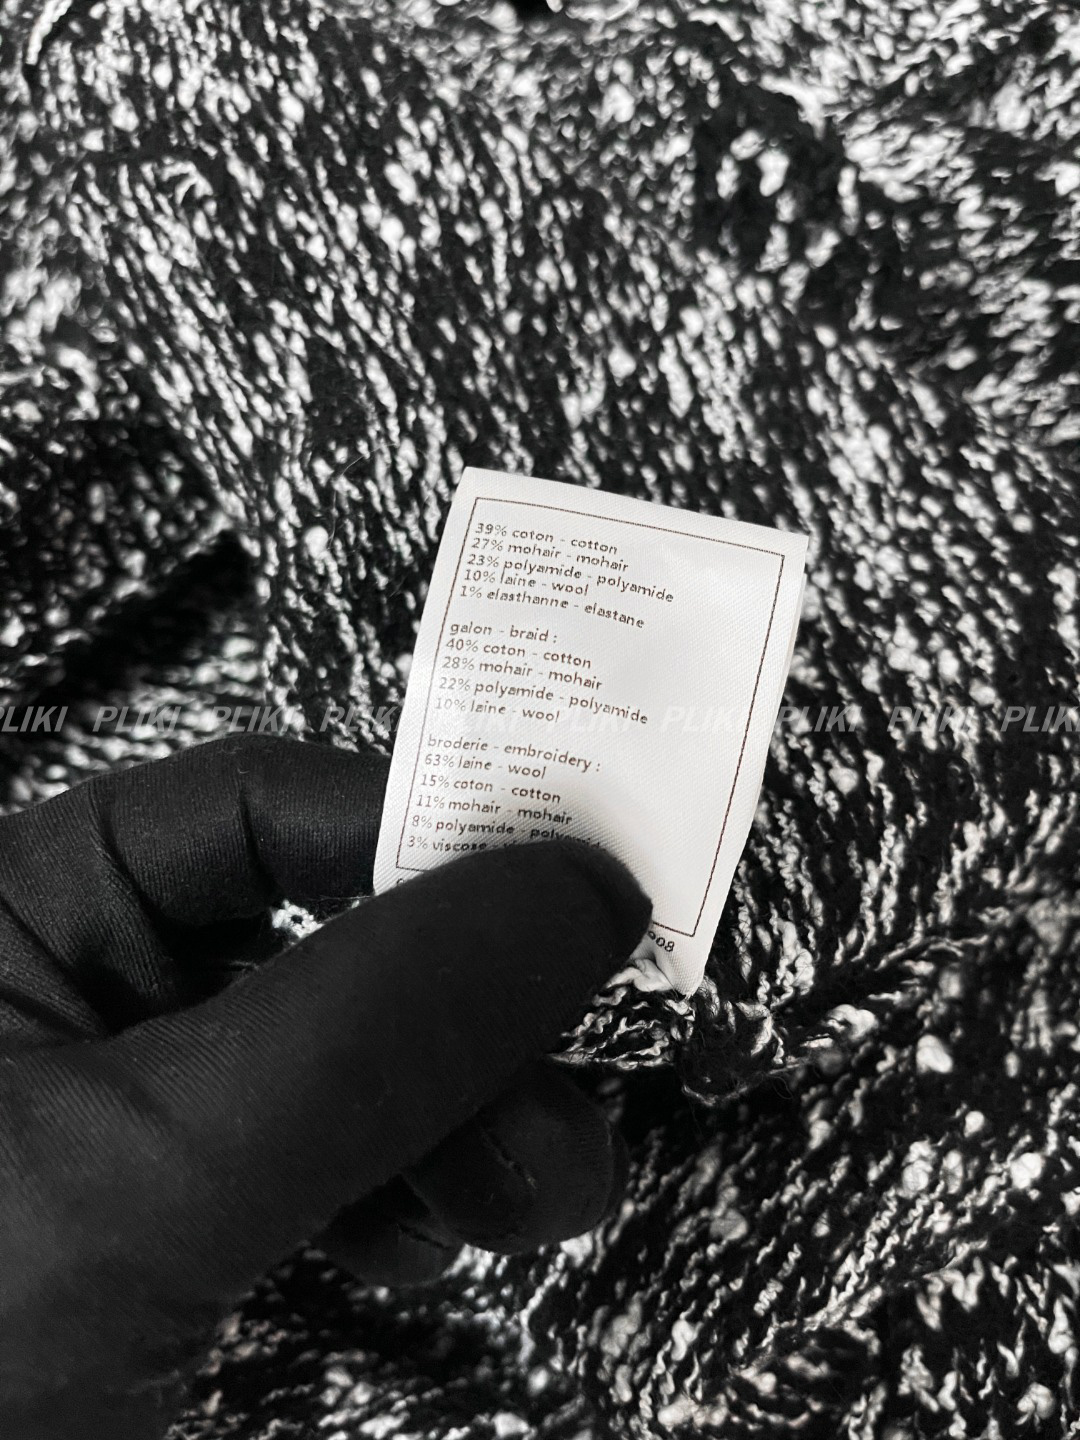 39% coton - cotton
27% mohair - mohair
23% polyamide - polyamide
10% laine - wool
1% elasthanne - elastane
galon - braid :
40% coton - cotton
28% mohair - mohair
22% polyamide - polyamide
10% laine - wool
PLIKI PLIKI PLIKI PLIKI PLIKI PLIKI PLIKI PLIKI PLIKI
broderie - embroidery :
63% laine - wool
15% coton - cotton
11% mohair - mohair
8% polyamide - polyamide
3% viscose -
908